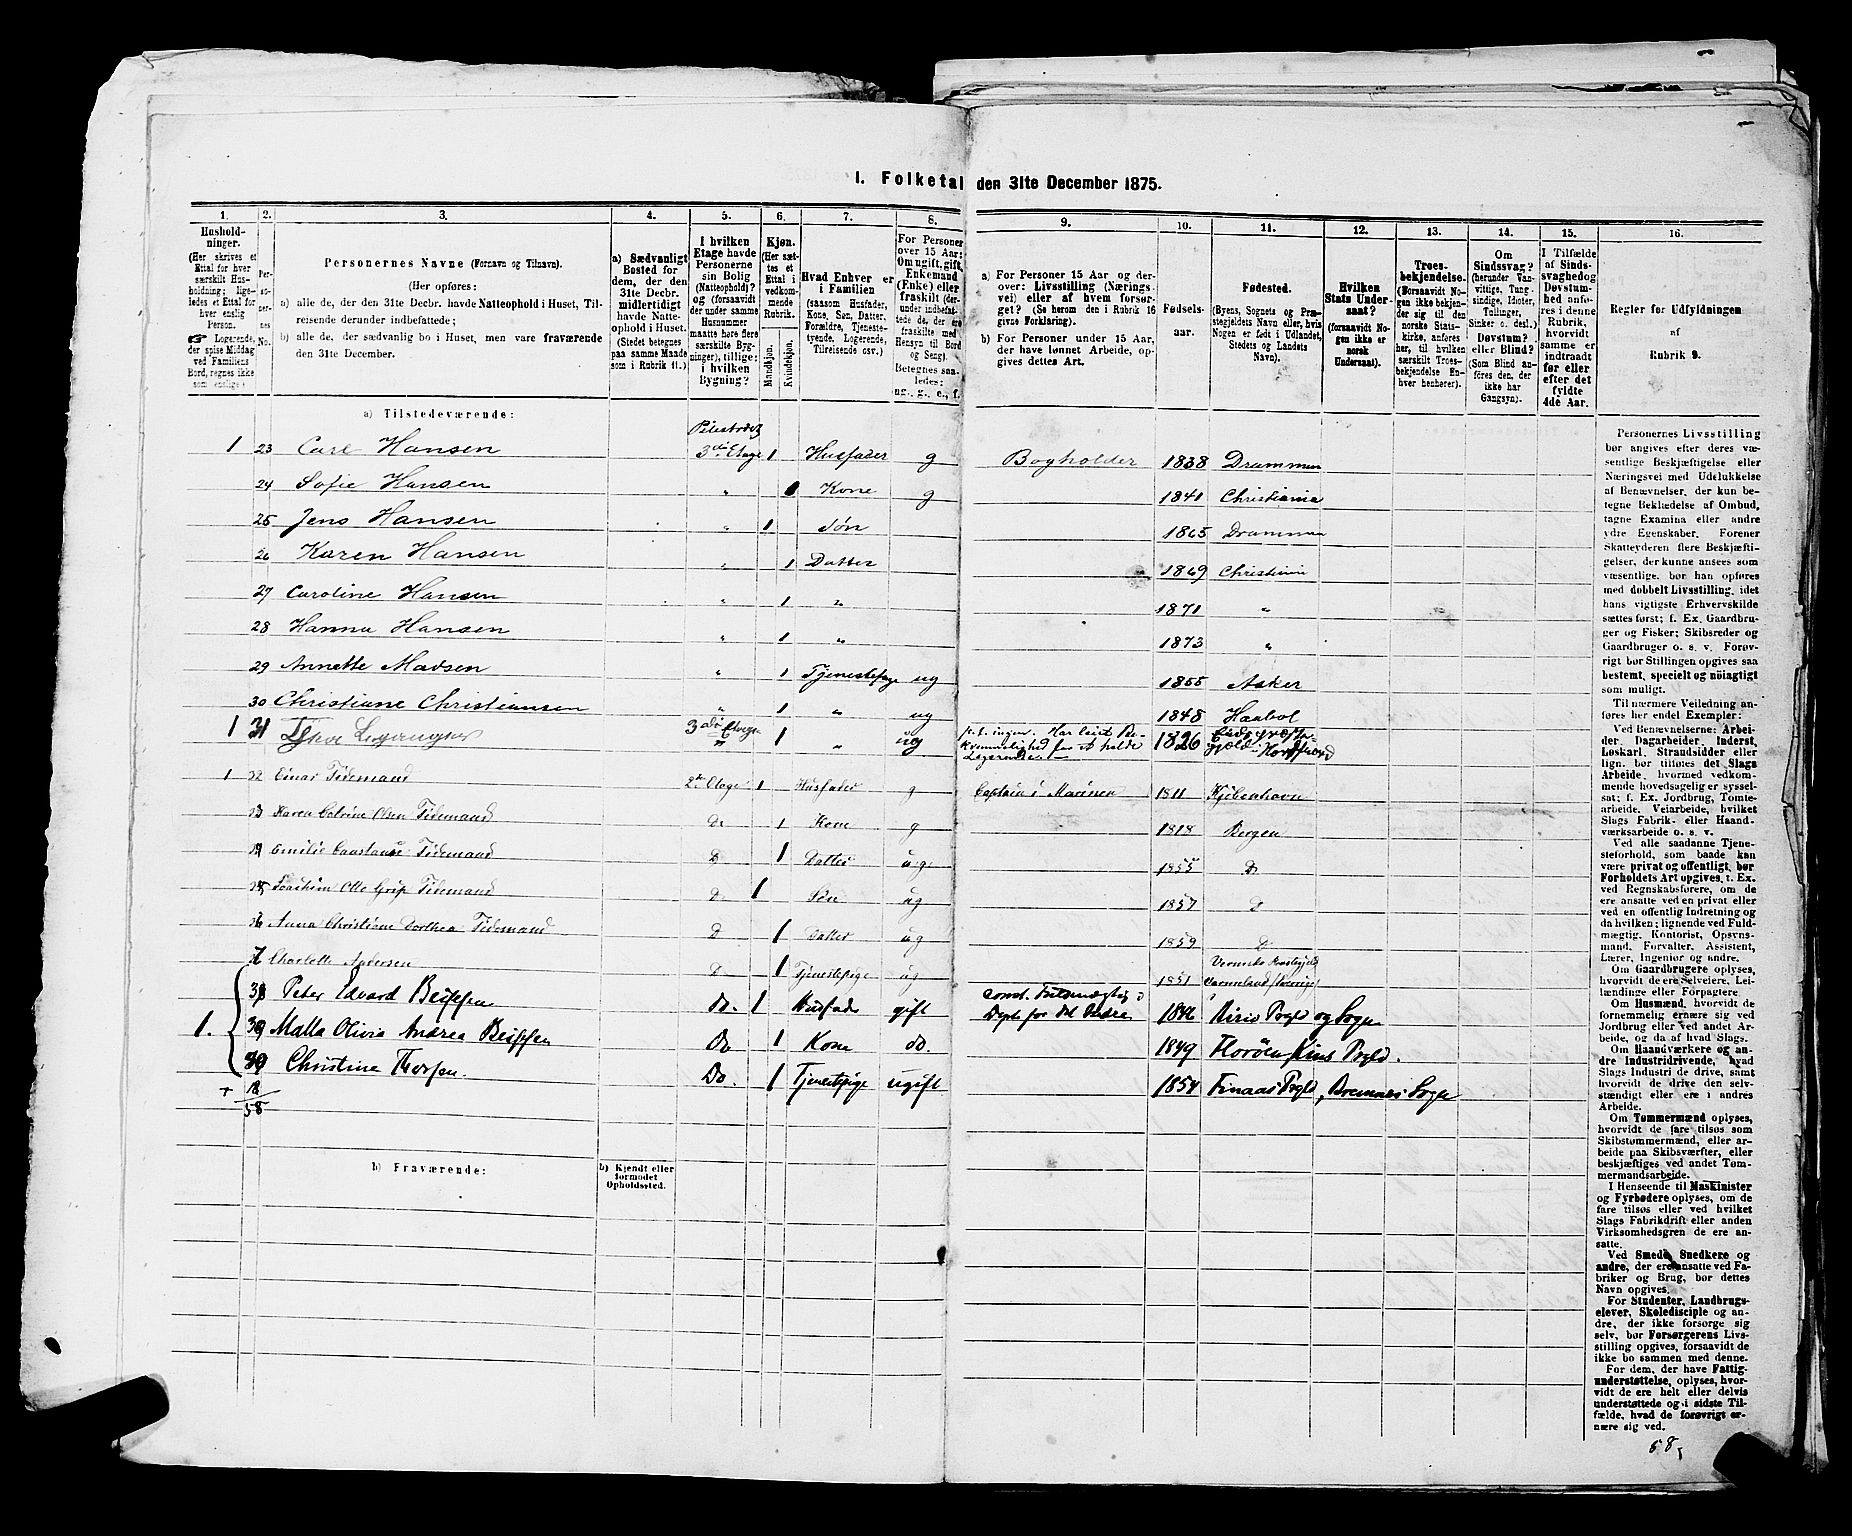 I. Folketal den 31te December 1875.
1. 2. 3. 4. 5. 6. 7. 8. 9. 10. 11. 12. 13. 14. 15. 16.
Husholdninger.
(Her skrives et Ettal for hver særskilt Husholdning; ligeledes et Ettal for hver enslig Person.
Logerende, der spise Middag ved Familiens Bord, regnes ikke som enslige.)
Personernes No.
Personernes Navne (Fornavn og Tilnavn).
(Her opføres:
a) alle de, der den 31te Decbr. havde Natteophold i Huset, Tilreisende derunder indbefattede;
b) alle de, der sædvanlig bo i Huset, men vare fraværende den 31te December.
a) Sædvanligt Bosted for dem, der den 31te Decbr. midlertidigt havde Natteophold i Huset. (Stedet betegnes paa samme Maade som i Rubrik 11.)
I hvilken Etage havde Personerne sin Bolig (Natteophold)? og (forsaavidt der under samme Husnummer maatte høre flere særskilte Bygninger), tillige: i hvilken Bygning?
Kjøn.
(Her sættes et Ettal i vedkommende Rubrik.
Mandkjøn. Kvindekjøn.
Hvad Enhver er i Familien
(saasom Husfader, Kone, Søn, Datter, Forældre, Tjenestetyende, Logerende, Tilreisende osv.)
For Personer over 15 Aar: Om ugift, gift, Enkemand (Enke) eller fraskilt (derunder indbefattede de, der ere fraskilte med Hensyn til Bord og Seng) Betegnes saaledes: ug., g., e., f.
a) For Personer 15 Aar og derover: Livsstilling (Næringsvei) eller af hvem forsørget? (Se herom den i Rubrik 16 givne Forklaring).
b) For Personer under 15 Aar, der have lønnet Arbeide, opgives dettes Art.
Fødselsaar.
Fødested.
(Byens, Sognets og Præstegjeldets Navn eller, hvis Nogen er født i Udlandet, Stedets og Landets Navn).
Hvilken Stats Undersaat?
(forsaavidt Nogen ikke er norsk Undersaat).
Troesbekjendelse.
(Forsaavidt Nogen ikke bekjender sig til den norske Statskirke, anføres her, til hvilken særskilt Troesbekjendelse Enhver henhører).
Om Sindssvag? (herunder Vanvittige, Tungsindige, Idioter, Tullinger, Sinker o. desl.) Døvstum? eller Blind? (Som Blind anføres den, der ikke har Gangsyn).
I Tilfælde af Sindssvaghed og Døvstumhed anføres i denne Rubrik, hvorvidt samme er indtraadt før eller efter det fyldte 4de Aar.
Regler for Udfyldningen af Rubrik 9.
a) Tilstedeværende:
1 23 Carl Hansen 3die Etage 1 Husfader g Bogholder 1838 Drammen
24 Sofie Hansen " Kone g 1841 Christiania
25 Jens Hansen " 1 Søn 1865 Drammen
26 Karen Hansen " 1 Datter 1869 Christiania
27 Caroline Hansen " 1 " 1871 "
28 Hanna Hansen " 1 " 1873 "
29 Annette Madsen " 1 Tjenestepige ug 1855 Asker
30 Christiane Christiansen " 1 " ug 1848 Haabøl
1 31 3die Etage 1 " ug 1826
1 32 Einar Tidemand 2de Etage 1 Husfader g Captain i Marinen 1811 Kjøbenhavn
33 Karen Catrine Olsen Tidemand Do 1 Kone g 1818 Bergen
34 Emilie Constanse Tidemand D 1 Datter ug 1855 D
35 Joachim Otto Grip Tidemand D 1 Søn ug 1857 D
36 Anna Christiane Dorthea Tidemand D 1 Datter ug 1859 D
37 Charlotte Andersen D 1 Tjenestepige ug 1851
38 Peter Edvard Do. 1 Husfader gift const. Fuldmægtig i Dept for det Indre 1846 Biris Pgld og Sogn
1. 39 Malla Olivia Andrea Do 1 Kone do. 1849 Florøen, Kins Pgld.
40 Christine Thorsen. Do. 1 Tjenestepige ugift 1854 Finaas Pgld, Bremnes Sogn
+ 18
58
b) Fraværende:
b) Kjendt eller formodet Opholdssted.
Personernes Livsstilling bør angives efter deres væsentlige Beskjæftigelse eller Næringsvei med Udelukkelse af Benævnelser, der kun betegne Beklædelse af Ombud, tagne Examina eller andre ydre Egenskaber. Forener Skatteyderen flere Beskjæftigelser, der kunne ansees som væsentlige, bør han opføres med dobbelt Livsstilling, idet hans vigtigste Erhvervskilde sættes først; f. Ex. Gaardbruger og Fisker; Skibsreder og Gaardbruger o. s. v. Forøvrigt bør Stillingen opgives saa bestemt, specielt og nøiagtigt som muligt.
Til nærmere Veiledning anføres her endel Exempler:
Ved Benævnelserne: Arbeider, Dagarbeider, Inderst, Løskarl, Strandsidder eller lign. bør tilføies det Slags Arbeide, hvormed vedkommende hovedsagelig er sysselsat; f. Ex. Jordbrug, Tomtearbeide, Veiarbeide, hvilket Slags Fabrik- eller Haandværksarbeide o. s. v.
Ved alle saadanne Tjenesteforhold, som baade kan være privat og offentligt, bør Forholdets Art opgives, t. Ex. ved Regnskabsførere, om de ere ansatte ved en privat eller ved en offentlig Indretning og da hvilken; lignende ved Fuldmægtig, Kontorist, Opsynsmand, Forvalter, Assistent, Lærer, Ingeniør og andre.
Om Gaardbrugere oplyses, hvorvidt de ere Selveiere, Leilændinge eller Forpagtere.
Om Husmænd, hvorvidt de fornemmelig ernære sig ved Jordbrug eller ved andet Arbeide, og da af hvad Slags.
Om Haandværkere og andre Industridrivende, hvad Slags Industri de drive, samt hvorvidt de drive den selvstændigt eller ere i andres Arbeide.
Om Tømmermænd oplyses, hvorvidt de fare tilsøs som Skibstømmermænd, eller arbeide paa Skibsværfter, eller beskjæftiges ved andet Tømmermandsarbeide.
I Henseende til Maskinister og Fyrbødere oplyses, om de fare tilsøs eller ved hvilket Slags Fabrikdrift eller anden Virksomhedsgren de ere ansatte.
Ved Smede, Snedkere og andre, der ere ansatte ved Fabriker og Brug, bør dettes Navn opgives.
For Studenter, Landbrugselever, Skoledisciple og andre, der ikke forsørge sig selv, bør Forsørgerens Livsstilling opgives, forsaavidt de ikke bo sammen med denne.
For dem, der have Fattigunderstøttelse, oplyses, hvorvidt de ere helt eller delvis understøttede og i sidste Tilfælde, hvad de forøvrigt ernære sig ved.